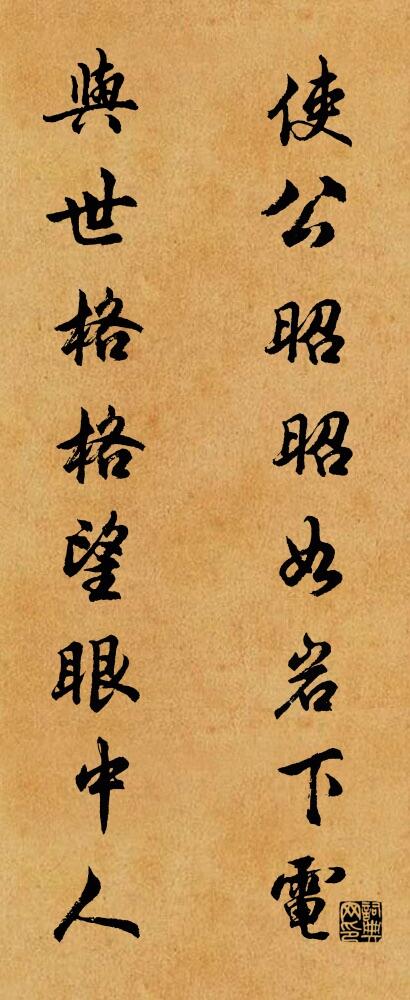 使公昭昭如岩下電
與世格格望眼中人
詞典网印